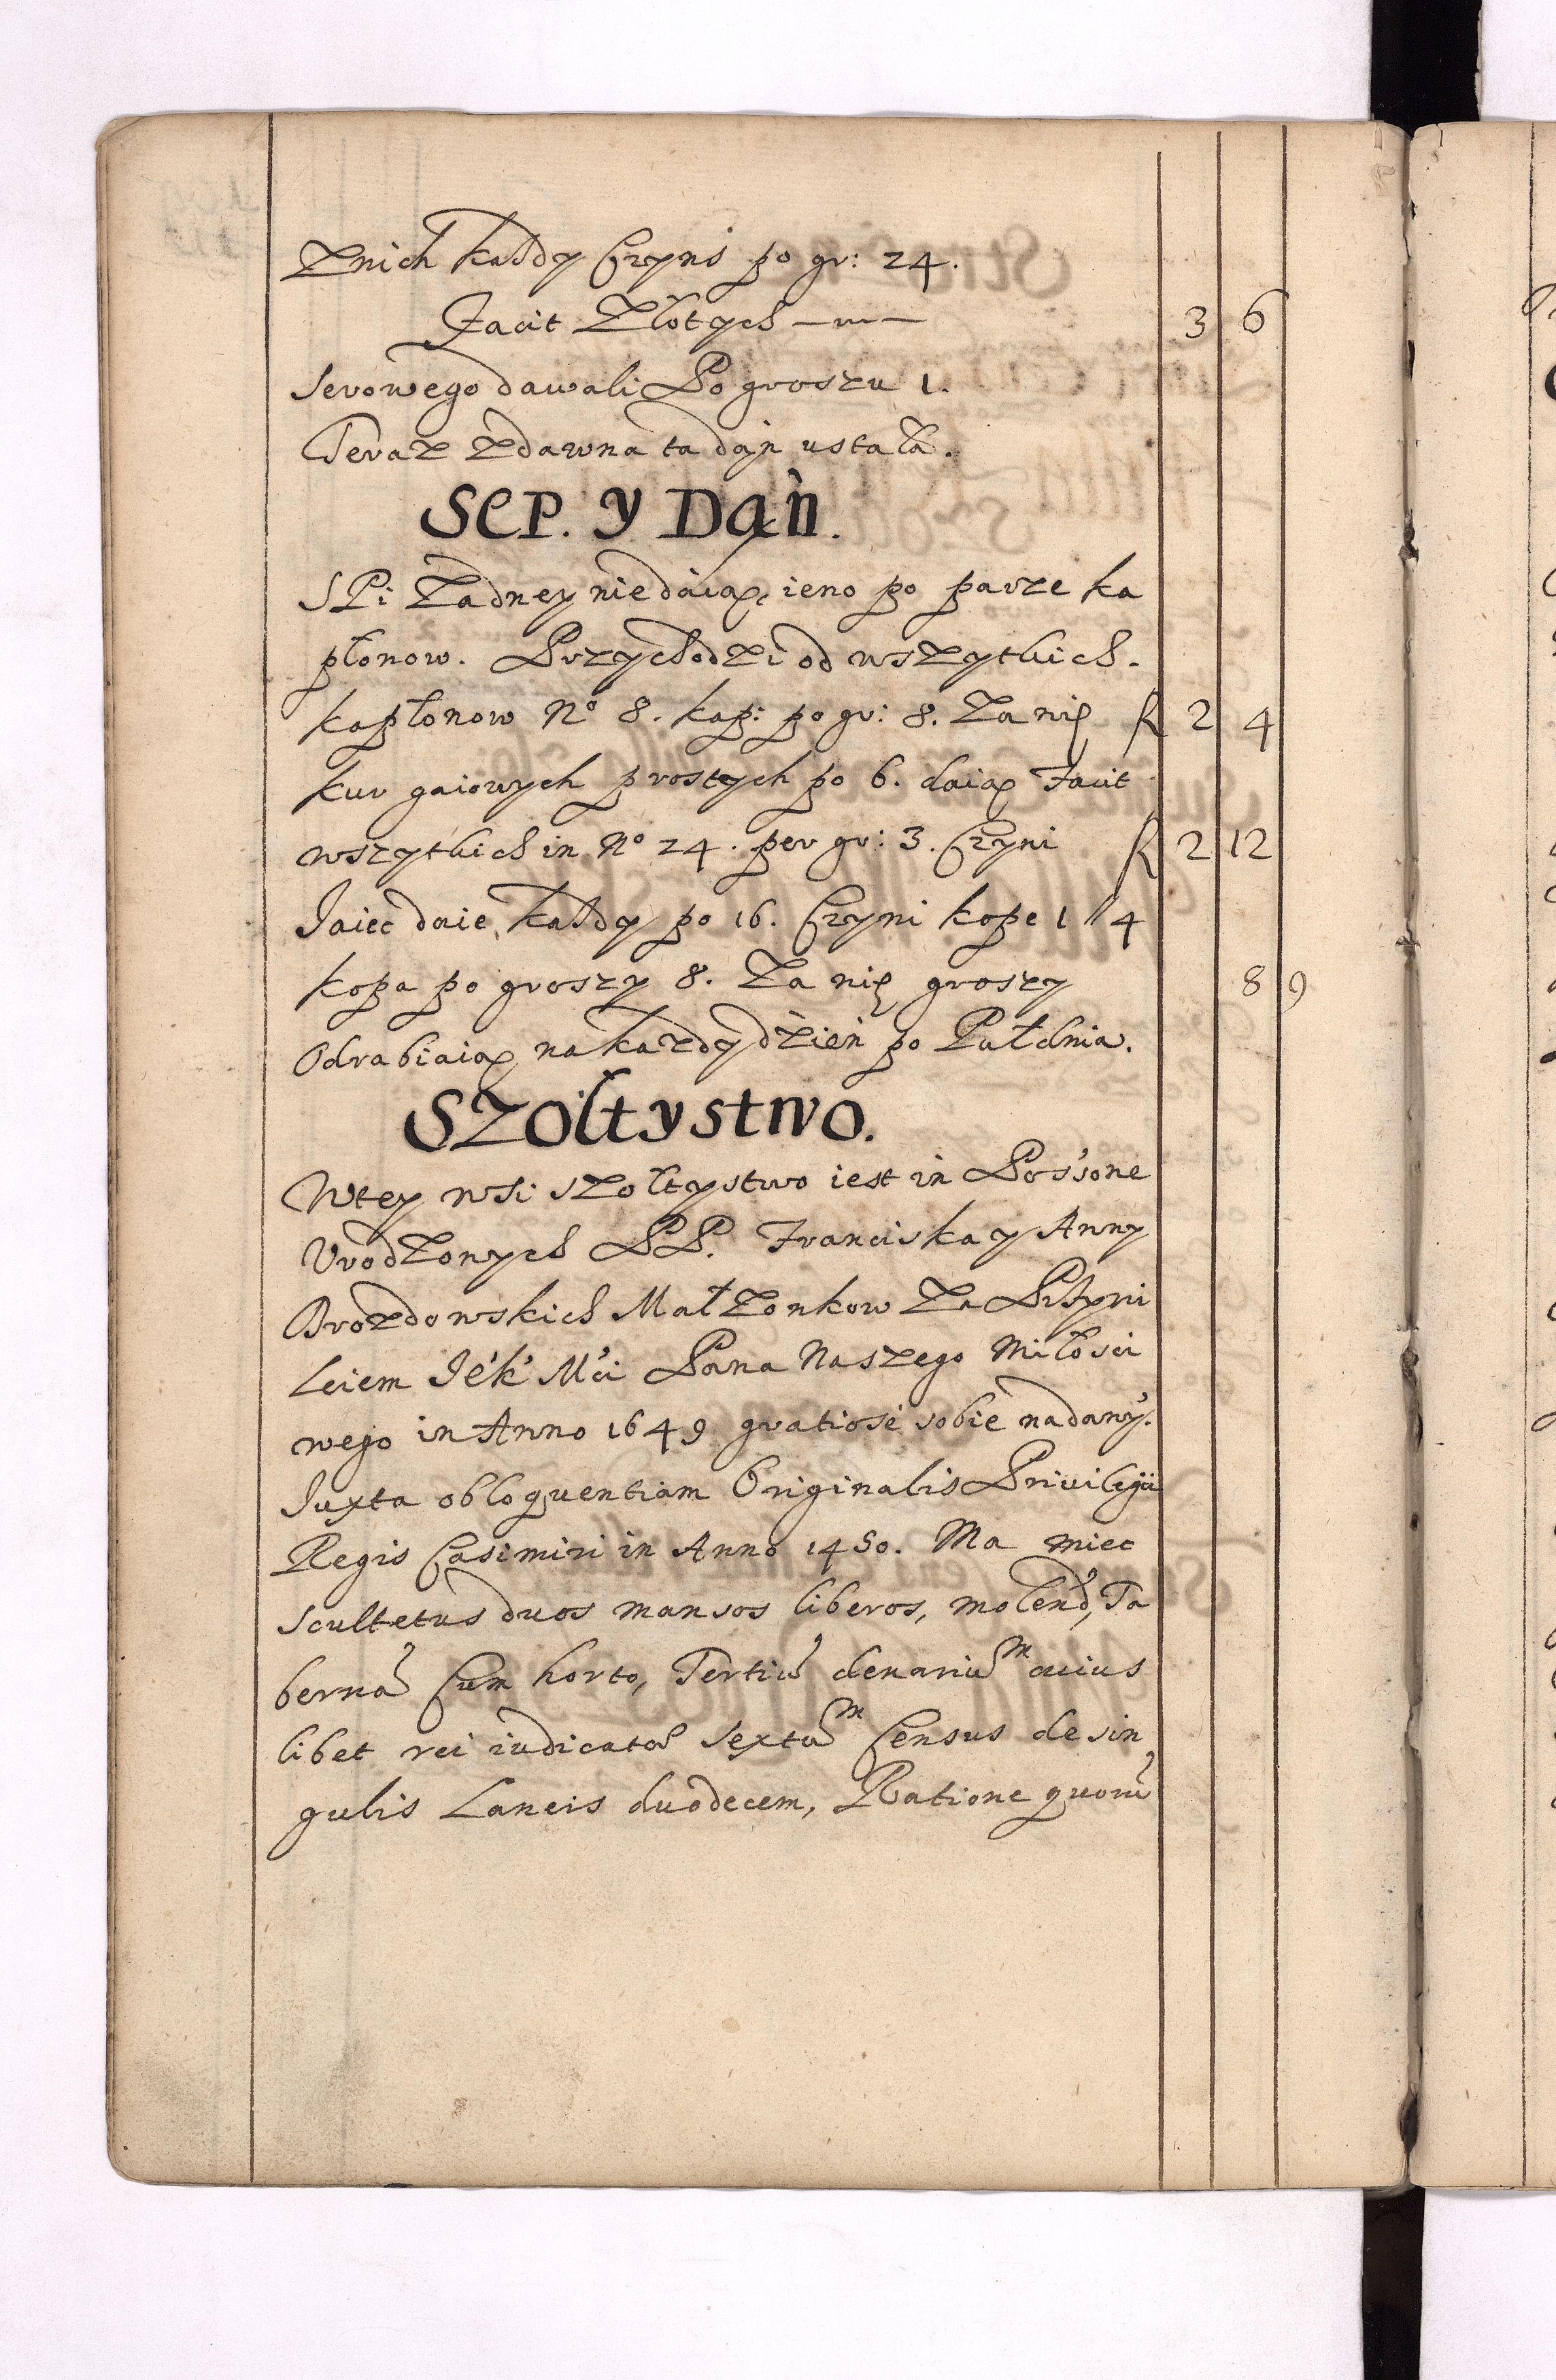 Znich każdy Czyni po gr: 24.
Facit Złotych 3 6
Serowego dawali Po groszu 1.
Teraz zdawna ta dań ustała.
Sep. y Dań.
SPi Zadney nie daiąc, ieno po parze ka
płonow. Przychodzi od wszytkich.
kapłonow No 8. kap: po gr: 8. Za nię f 2 4
kur gaiowych prostych po 6. daią facit
wszytkich in No 24. per gr: 3. Czyni f 2 12
Jaiec daie, każdy po 16. Czyni kope 1 // 4
kopa po groszy 8. Za nię groszy 8 9
Odrabiaią na każdy dzień po Pułdnia.
Szołtystwo.
Wtey wsi szołtystwo iest in Pos'sone
Urodzonych PP. Franciska y Anny
Drozdowskich Małżonkow Za Przywi
leiem Jé'k' M'ci Pana Naszego Miłości
wego in Anno 1649 gratiosé sobie nadany'.
Juxta obloquentiam Originalis Privilegii
Regis Casimiri in Anno 1450. Ma miec
scultetus duos mansos liberos, molend', Ta
berna' Cum horto, Tertiu' denariu'm cuius
libet rei iudicata' sextu'm Census de sin
gulis Laneis duodecem, Ratione quoru'